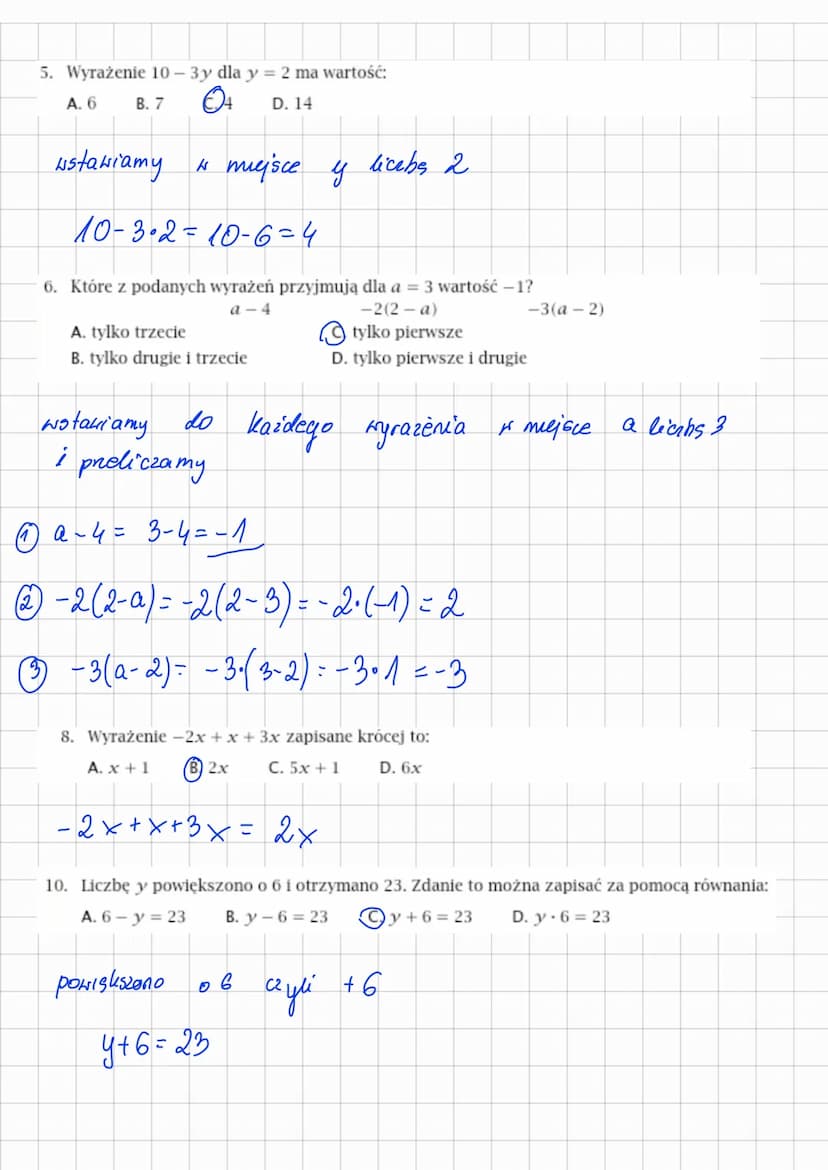 5. Wyrażenie 10 – 3y dla y = 2 ma wartość:
A. 6 B. 7 C. 4 D. 14
wstawiamy w miejsce y liczbę 2
10-3•2 = 10-6=4
6. Które z podanych wyrażeń przyjmują dla a = 3 wartość –1?
a – 4 –2(2 – a) –3(a – 2)
A. tylko trzecie C tylko pierwsze
B. tylko drugie i trzecie D. tylko pierwsze i drugie
wstawiamy do każdego wyrażenia w miejsce a liczbę 3
i przeliczamy
① a-4= 3-4=-1
② -2(2-a)=-2(2-3)=-2•(-1)=2
③ -3(a-2)= -3•(3-2)=-3•1=-3
8. Wyrażenie –2x + x + 3x zapisane krócej to:
A. x + 1 B 2x C. 5x + 1 D. 6x
-2x+x+3x= 2x
10. Liczbę y powiększono o 6 i otrzymano 23. Zdanie to można zapisać za pomocą równania:
A. 6 – y = 23 B. y – 6 = 23 C. y + 6 = 23 D. y · 6 = 23
powiększono o 6 czyli +6
y+6=23